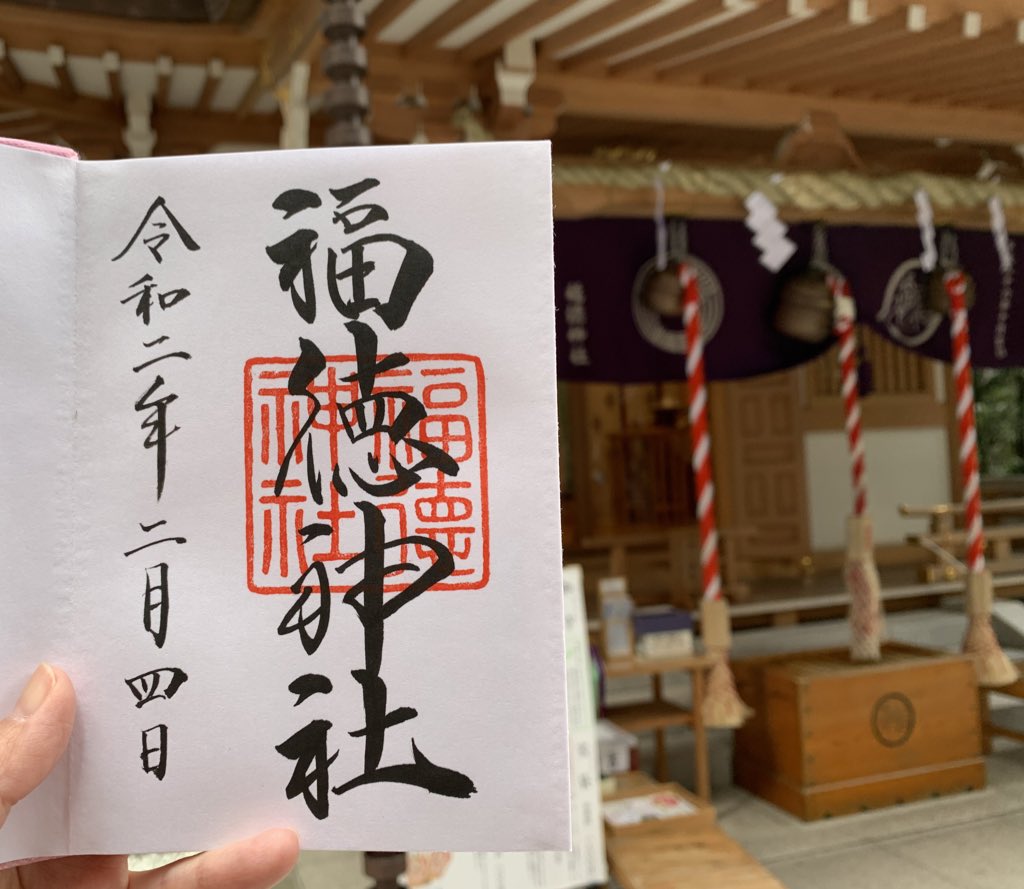 福徳神社
福徳神社
令和二年二月四日